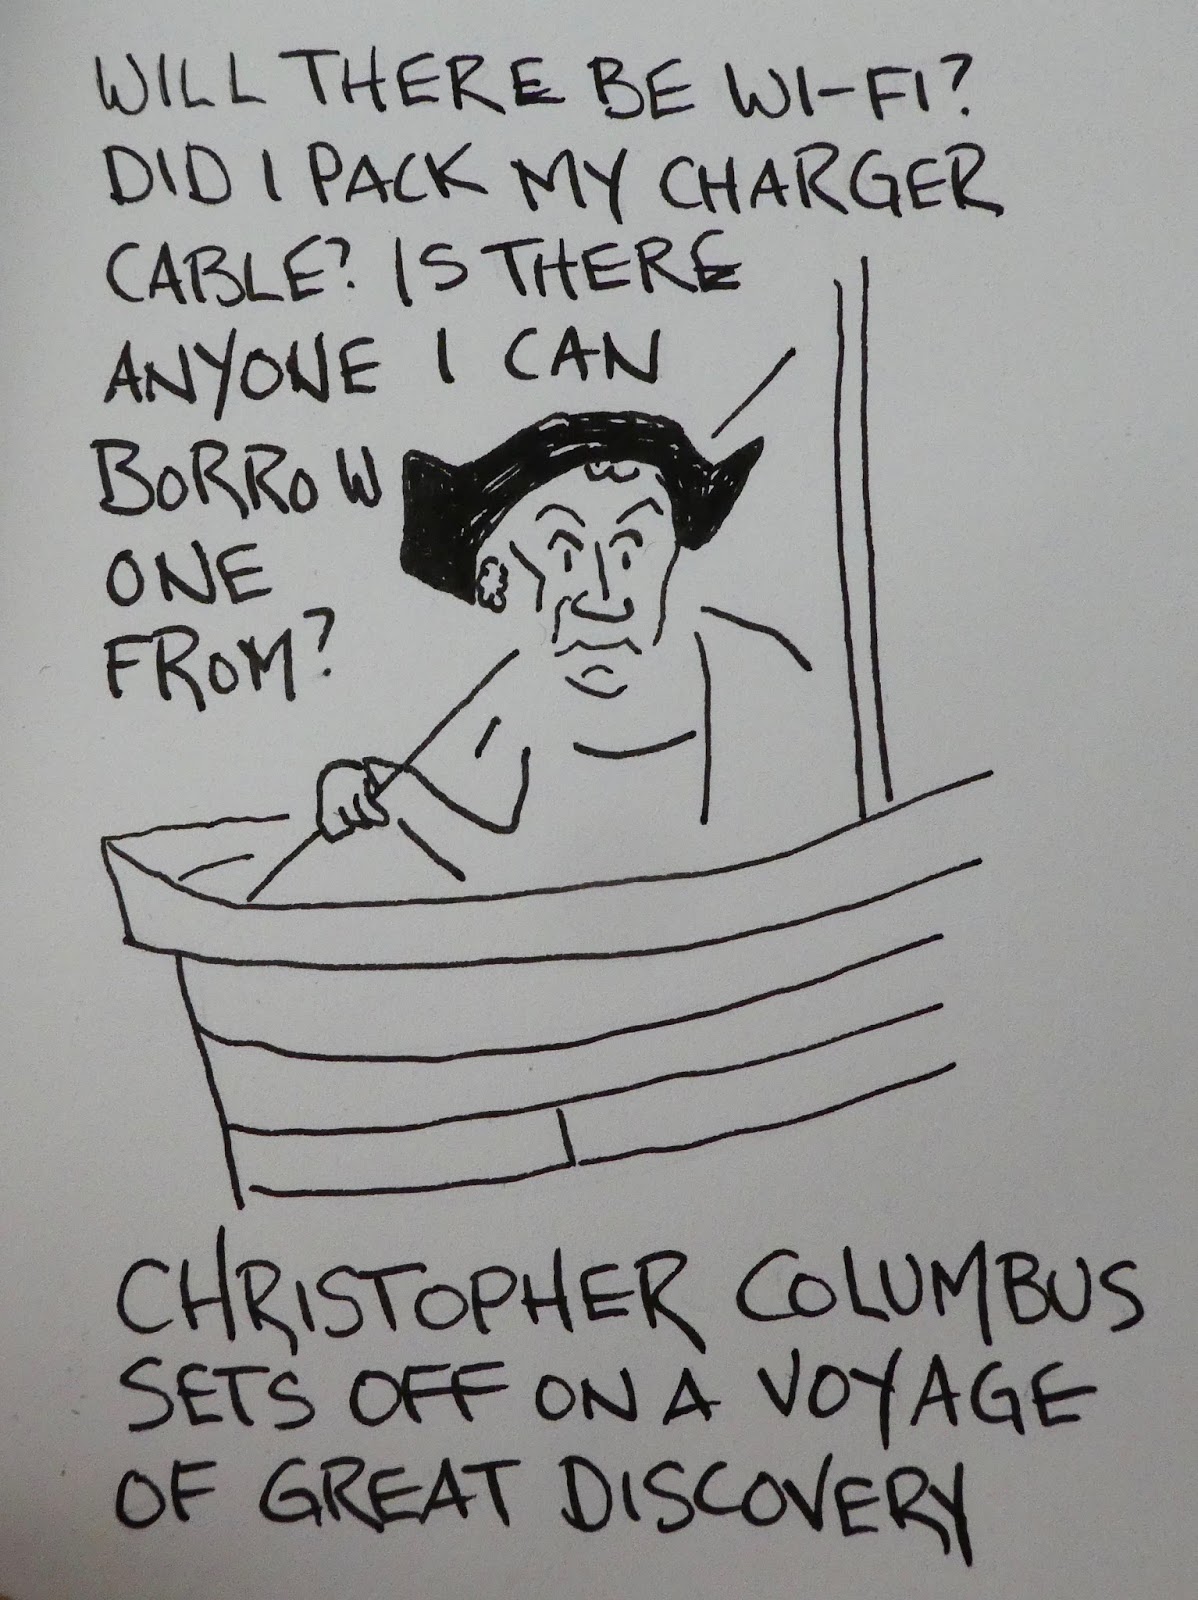 WILL THERE BE WI-FI?
DID I PACK MY CHARGER
CABLE? IS THERE
ANYONE I CAN
BORROW
ONE
FROM?
CHRISTOPHER COLUMBUS
SETS OFF ON A VOYAGE
OF GREAT DISCOVERY